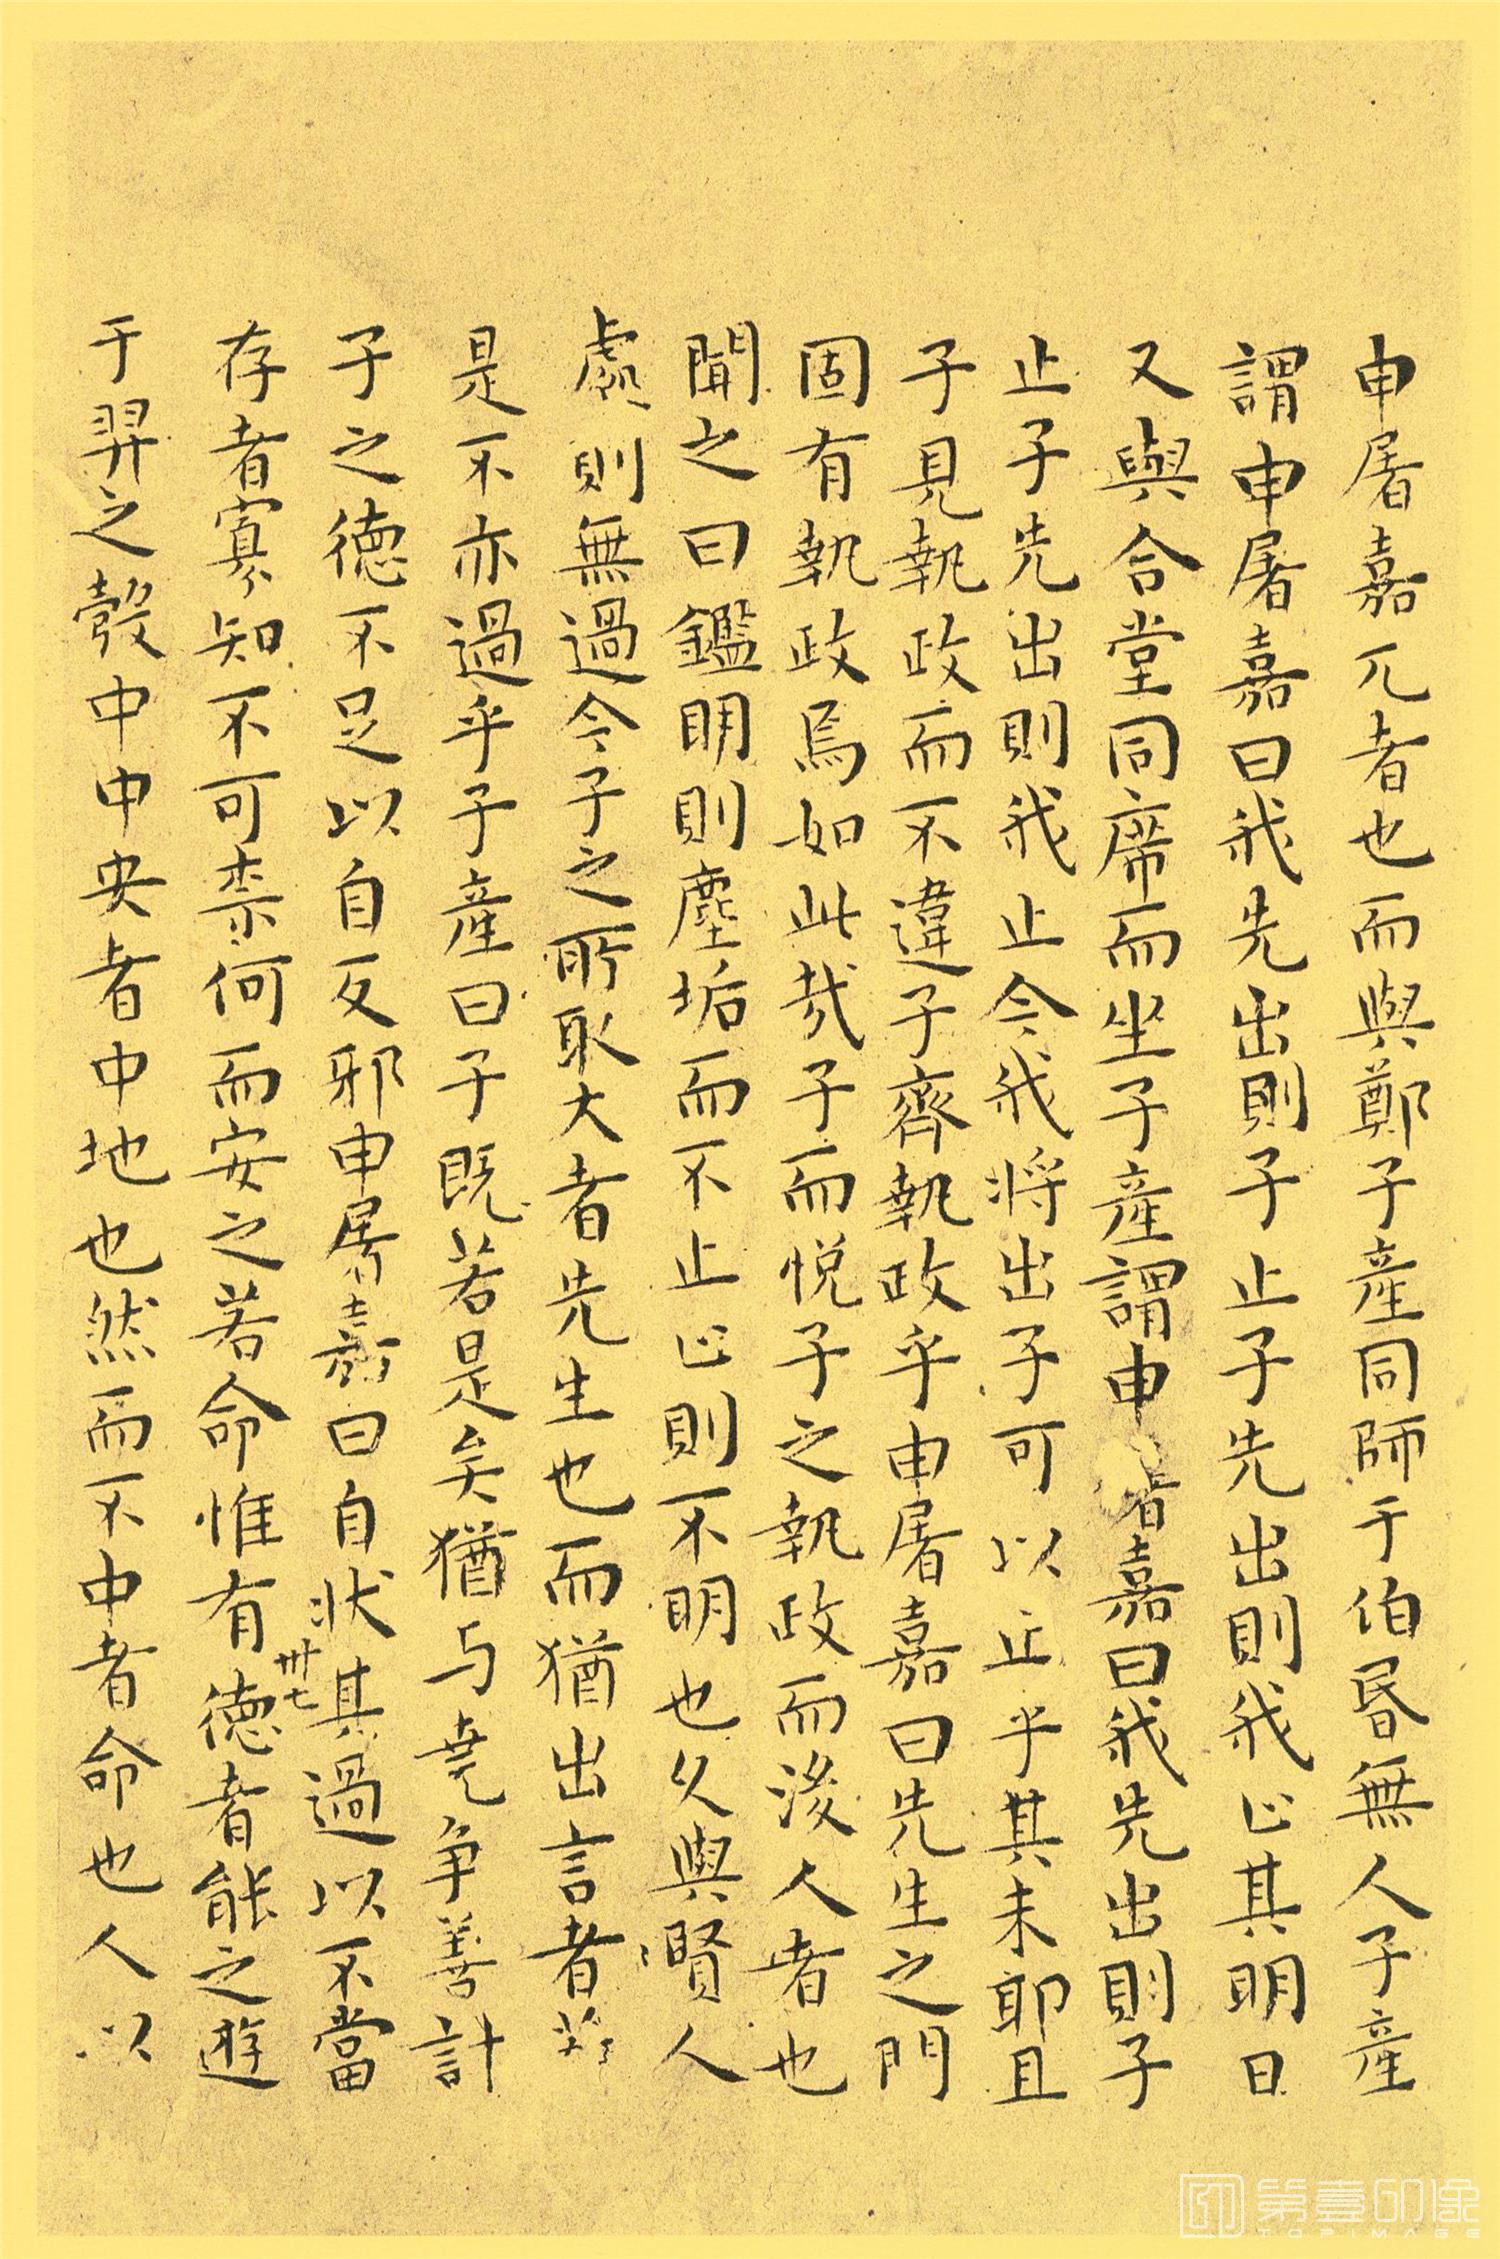 申屠嘉兀者也而與鄭子産同師于伯昏無人子産
謂申屠嘉曰我先出則子止子先出則我止其明日
又與合堂同席而坐子産謂申屠嘉曰我先出則子
止子先出則我止今我將出子可以止乎其未耶且
子見執政而不違子齊執政乎申屠嘉曰先生之門
固有執政焉如此哉子而悅子之執政而後人者也
聞之曰鑑明則塵垢而不止止則不明也久與賢人
處則無過今子之所取大者先生也而猶出言者若
是不亦過乎子産曰子既若是矣猶与堯爭善計
子之德不足以自反邪申屠嘉曰自狀其過以不當
卌七
存者寡知不可柰何而安之若命惟有德者能之遊
于羿之彀中中央者中地也然而不中者命也人以
第壹印像
TOPIMAGE